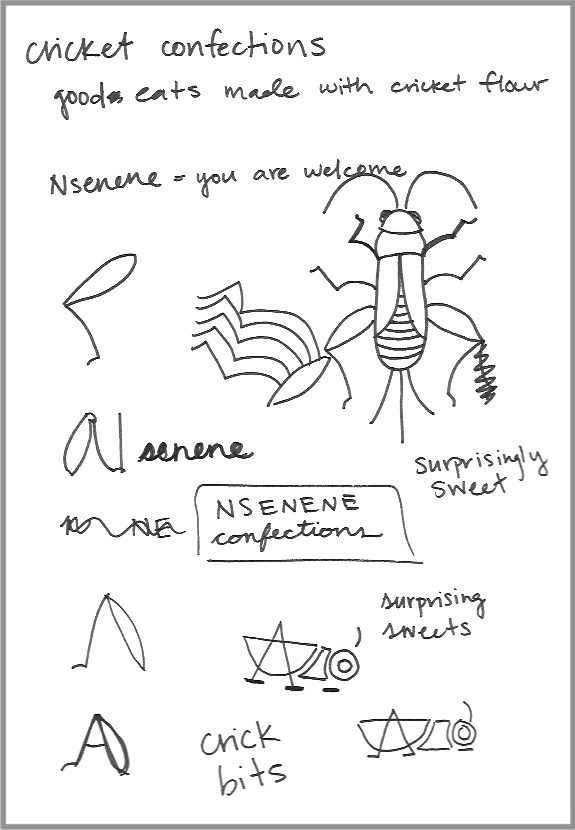 cricket confections
goods eats made with cricket flour
Nsenene = you are welcome
Nsenene
surprisingly
sweet
NSENENE
confections
surprising
sweets
A
crick
bits